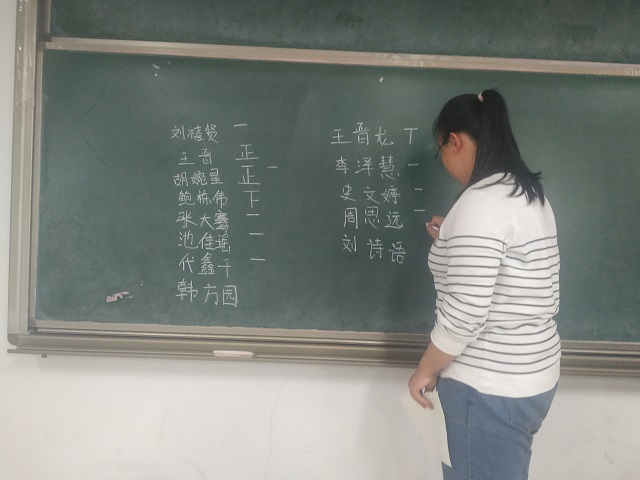 刘禧贤 一
王晋 正
胡婉星 正一
鲍栋伟 下
张大骞 一
池佳瑶 一
代鑫千 一
韩方园
王晋龙 丅
李泽慧 一
史文婷 二
周思远 一
刘诗语